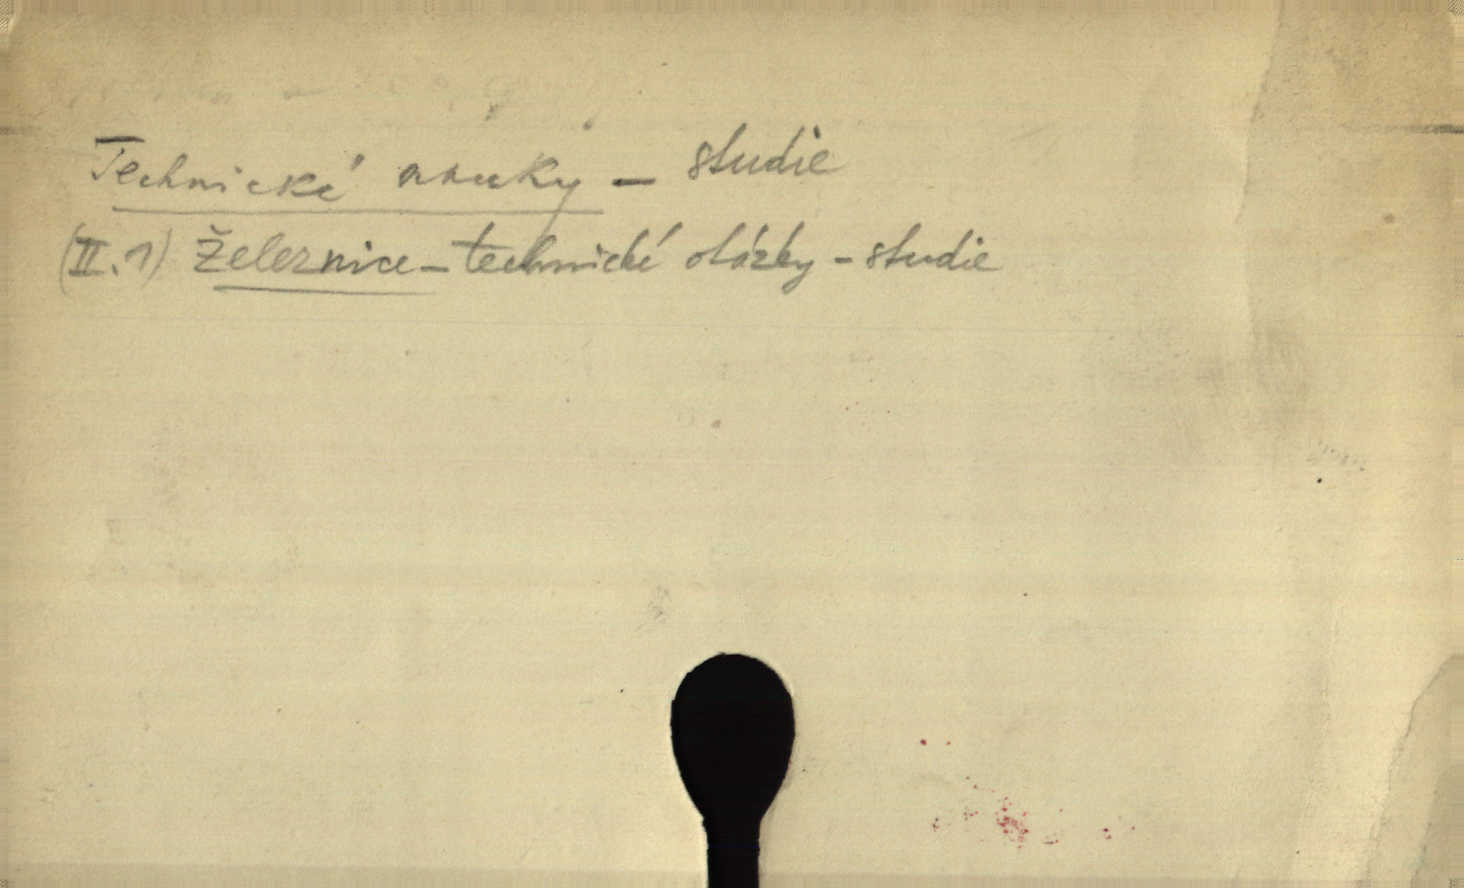 Technické nauky - studie
(II. 1) Železnice - technické otázky - studie